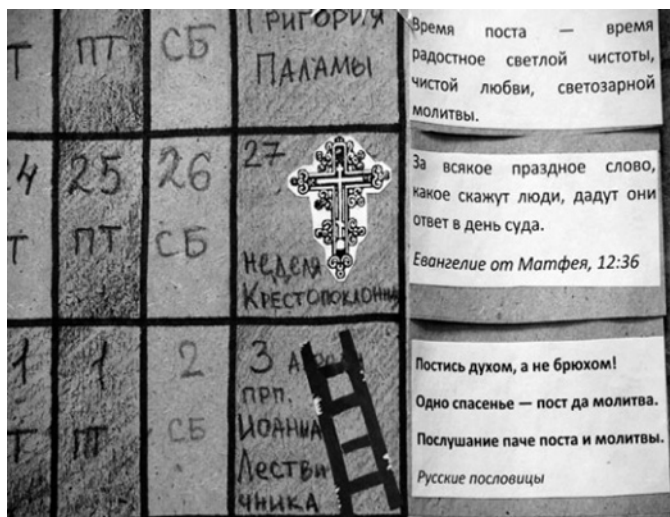 Григория
ПТ СБ Паламы
25 26 27
ПТ СБ
Неделя
Крестопоклонная
1 2 3
прп.
ПТ СБ Иоанна
Лестви
чника
Время поста — время
радостное светлой чистоты,
чистой любви, светозарной
молитвы.
За всякое праздное слово,
какое скажут люди, дадут они
ответ в день суда.
Евангелие от Матфея, 12:36
Постись духом, а не брюхом!
Одно спасенье — пост да молитва.
Послушание паче поста и молитвы.
Русские пословицы